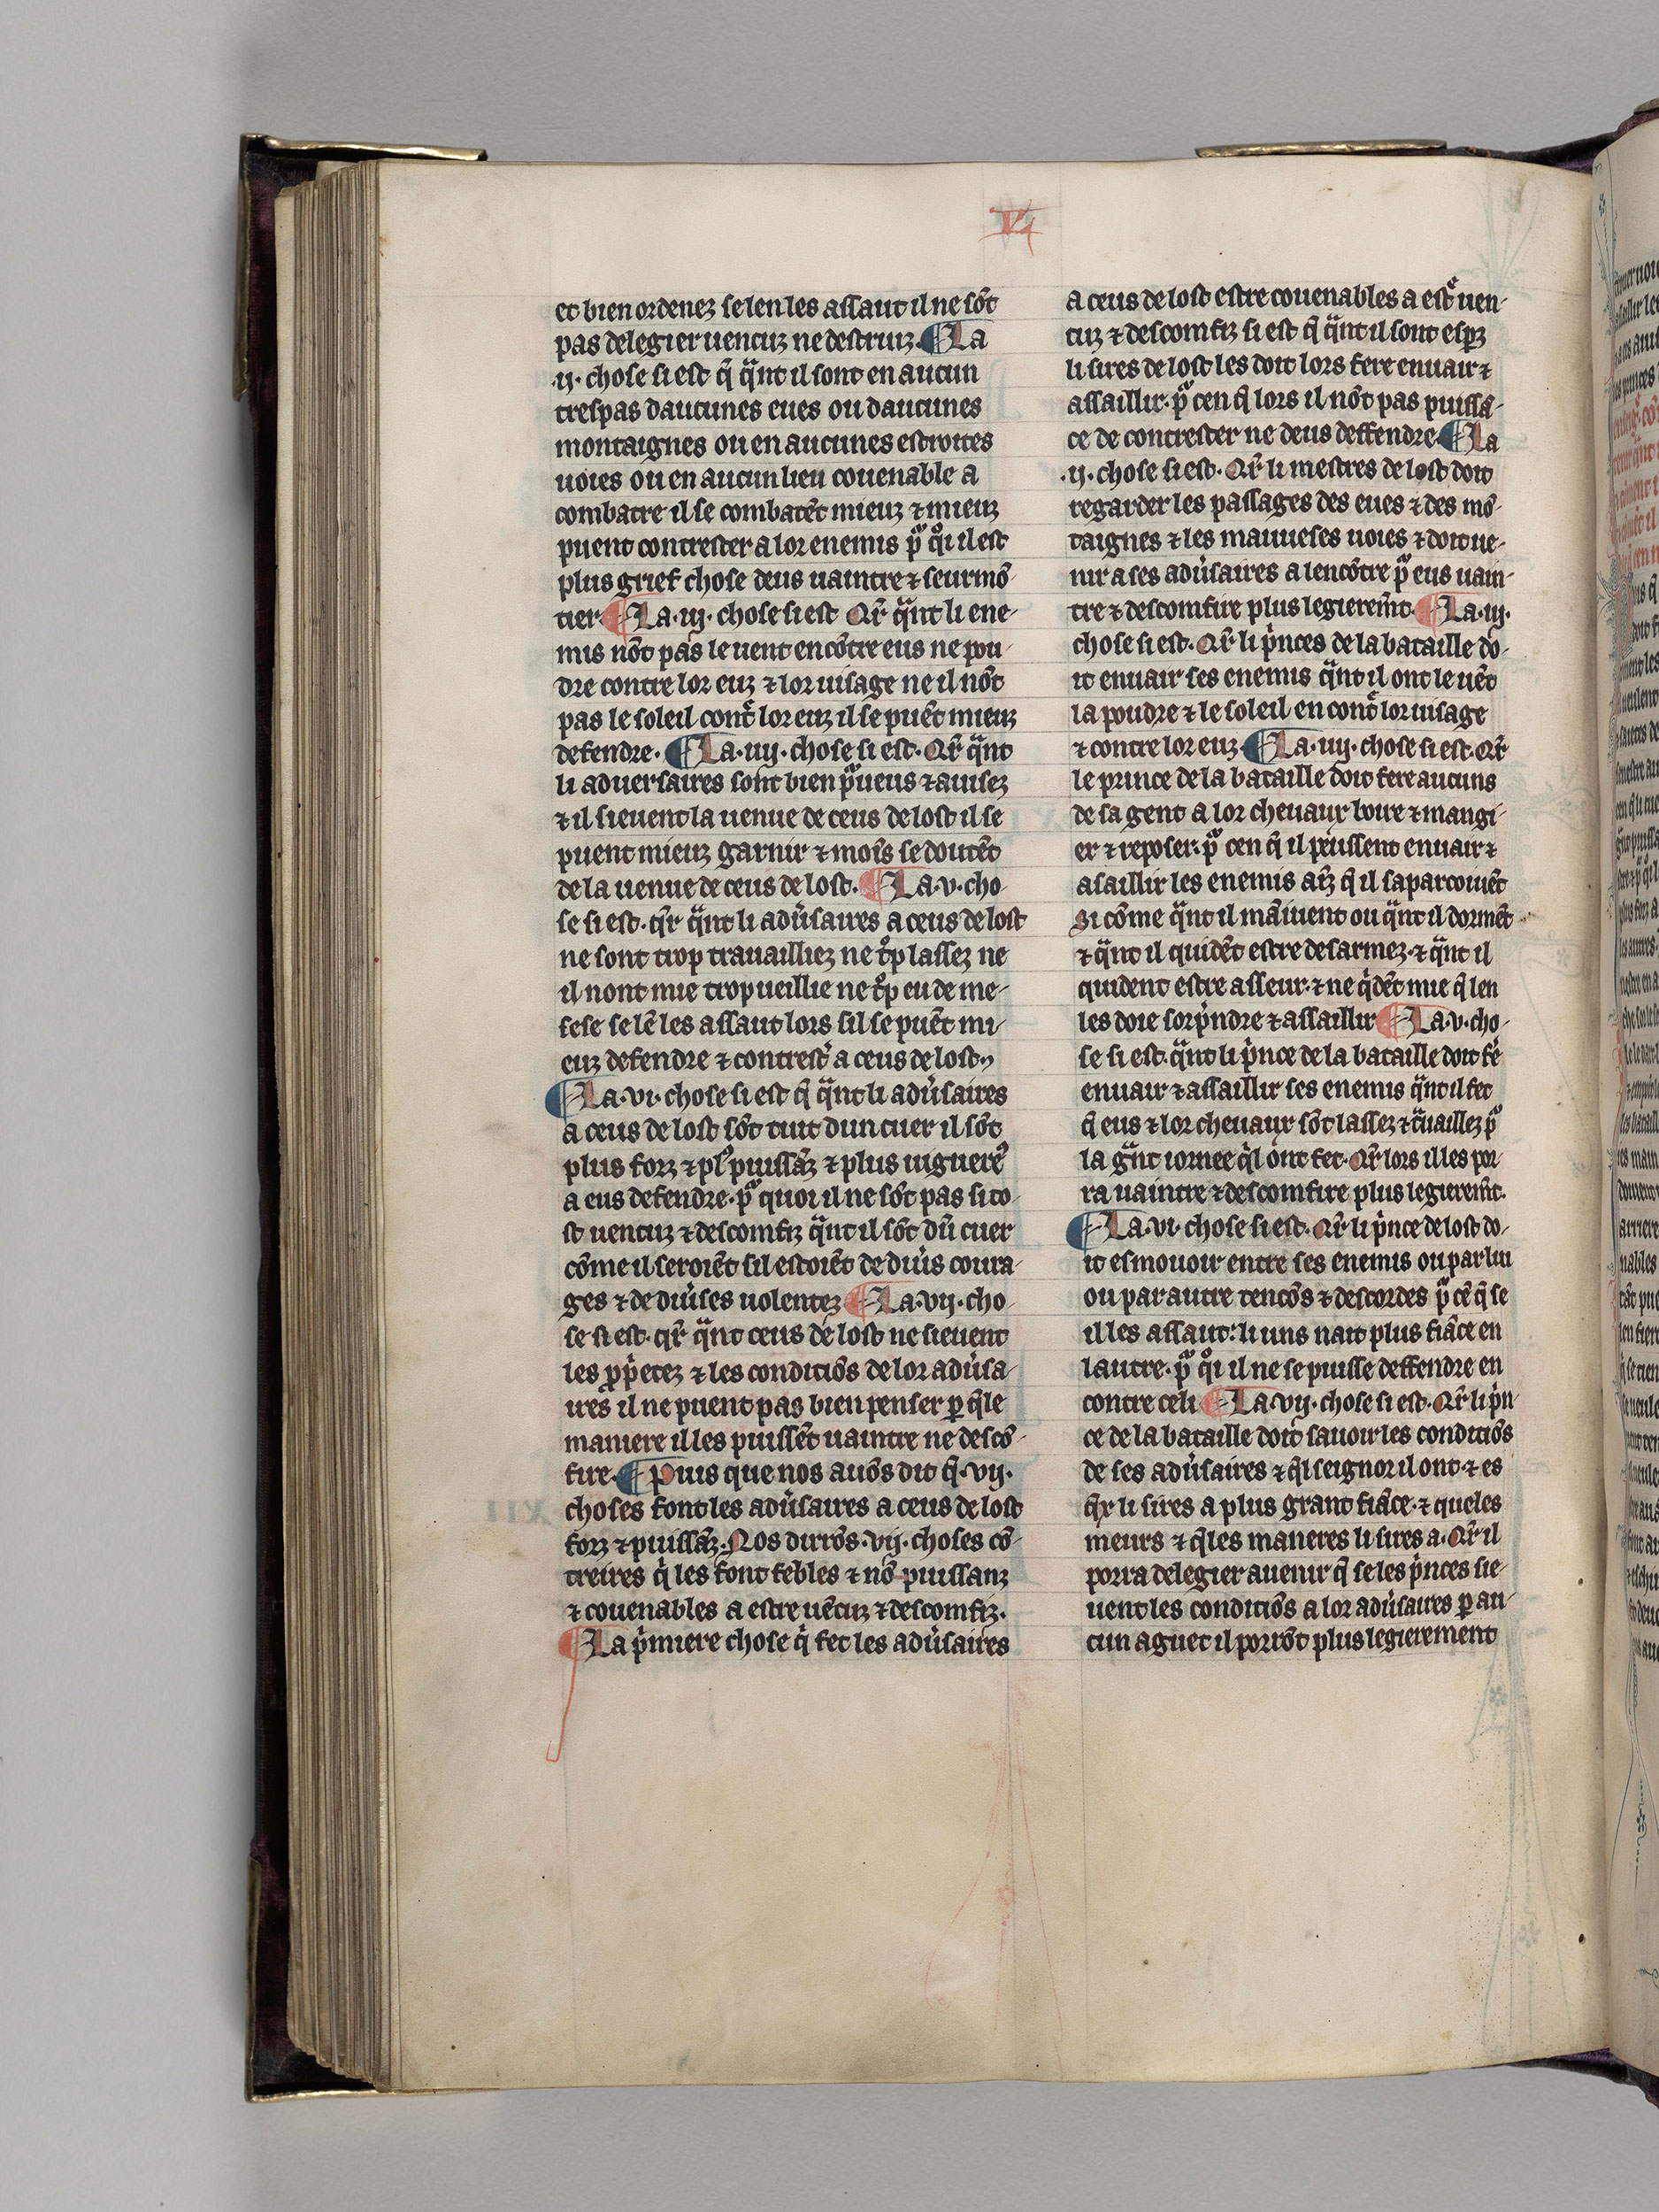 et bien ordenez se len les assaut il ne sōt
pas de legier uencuz ne destruiz. ¶ La
.ij. chose si est q̄ qͣnt il sont en aucun
trespas daucunes eues ou daucunes
montaignes ou en aucunes estroites
uoies ou en aucun lieu couenable a
combatre il se combatēt mieuz ⁊ mieuz
puent contrester a lor enemis pͦ qͦi il est
plus grief chose deus uaintre ⁊ seurmō-
tier. ¶ La .iij. chose si est Qr̄ qͣnt li ene-
mis nōt pas le uent encōtre eus ne pou-
dre contre lor euz ⁊ lor uisage ne il nōt
pas le soleil contͤ lor euz il se puēt mieuz
defendre. ¶ La .iiij. chose si est. Qr̄ qͣnt
li aduersaires sont bien pͦueus ⁊ auisez
⁊ il sieuent la uenue de ceus de lost il se
puent mieuz garnir ⁊ mois se doutēt
de la uenue de ceus de lost. ¶ La .v. cho-
se si est. qr̄ qͣnt li adu̓saires a ceus de lost
ne sont trop trauailliez ne tͦp lassez ne
il nont mie trop ueillie ne tͦp eu de me-
sese se lē les assaut lors sil se puēt mi-
euz defendre ⁊ contrest̓ a ceus de lost.
¶ La .vi. chose si est q̄ qͣnt li adu̓saires
a ceus de lost sōt tuit dun cuer il sōt
plus forz ⁊ plꝰ puissāz ⁊ plus uiguerꝰ
a eus defendre. pͦ quoi il ne sōt pas si to-
st uencuz ⁊ descomfiz qͣnt il sōt dū cuer
cōme il seroiēt sil estoiēt de diu̓s coura-
ges ⁊ de diu̓ses uolentez ¶ La .vij. cho-
se si est. qr̄ qͣnt ceus de lost ne sieuent
les ꝓp̓etez ⁊ les conditiōs de lor adu̓sa-
ires il ne puent pas bien penser ꝑ q̄le
maniere il les puissēt uaintre ne descō-
fire. ¶ Puis que nos auōs dit q̄ .vij.
choses font les adu̓saires a ceus de lost
forz ⁊ puissāz. Nos dirrōs .vij. choses cō-
treires qͥ les font febles ⁊ nō puissanz
⁊ couenables a estre uēcuz ⁊ descomfiz.
¶ La pͥmiere chose qͥ fet les adu̓saires
a ceus de lost estre couenables a estͤ uen-
cuz ⁊ descomfiz si est q̄ qͣnt il sont esꝑz
li sires de lost les doit lors fere enuair ⁊
assaillir. pͦ cen q̄ lors il nōt pas puissā-
ce de contrester ne deus deffendre. ¶ La
.ij. chose si est. Qr̄ li mestres de lost doit
regarder les passages des eues ⁊ des mō-
taignes ⁊ les mauueses uoies ⁊ doit ue-
nir a ses adu̓saires a lencōtre pͦ eus uain-
tre ⁊ descomfire plus legierem̄t. ¶ La .iij.
chose si est. Qr̄ li pͥnces de la bataille do-
it enuair ses enemis qͣnt il ont le uēt
la poudre ⁊ le soleil en contͤ lor uisage
⁊ contre lor euz. ¶ La .iiij. chose si est. Qr̄
le prince de la bataille doit fere aucuns
de sa gent a lor cheuaux boire ⁊ mangi-
er ⁊ reposer. pͦ cen q̄ il peussent enuair ⁊
asaillir les enemis aīz q̄ il saparcoiuēt
Si cōme qͣnt il māiuent ou qͣnt il dormēt
⁊ qͣnt il quidēt estre desarmez. ⁊ qͣnt il
quident estre asseur. ⁊ ne qͥdēt mie q̄ len
les doie sorpͥndre ⁊ assaillir ¶ La .v. cho-
se si est. qͣnt li pͥnce de la bataille doit fē
enuair ⁊ assaillir ses enemis qͣnt il set
q̄ eus ⁊ lor cheuaux sōt lassez ⁊ tͣuaillez pͦ
la gͣnt iornee qͥl ont fet. Qr̄ lors il les por-
ra uaintre ⁊ descomfire plus legierem̄t.
¶ La .vi. chose si est. Qr̄ li pͥnce de lost do-
it esmouoir entre ses enemis ou par lui
ou par autre tencōs ⁊ descordes pͦ cē q̄ se
il les assaut. li uns nait plus fiāce en
lautre. pͦ qͦi il ne se puisse deffendre en
contre celi ¶ La .vij. chose si est. Qr̄ li pͥn-
ce de la bataille doit sauoir les conditiōs
de ses adu̓saires ⁊ q̄l seignor il ont. ⁊ es
q̄x li sires a plus grant fiāce. ⁊ queles
meurs ⁊ q̄les maneres li sires a. Qr̄ il
porra de legier auenir q̄ se les pͥnces sie-
uent les conditiōs a lor adu̓saires ꝑ au-
cun aguet il porrōt plus legierement